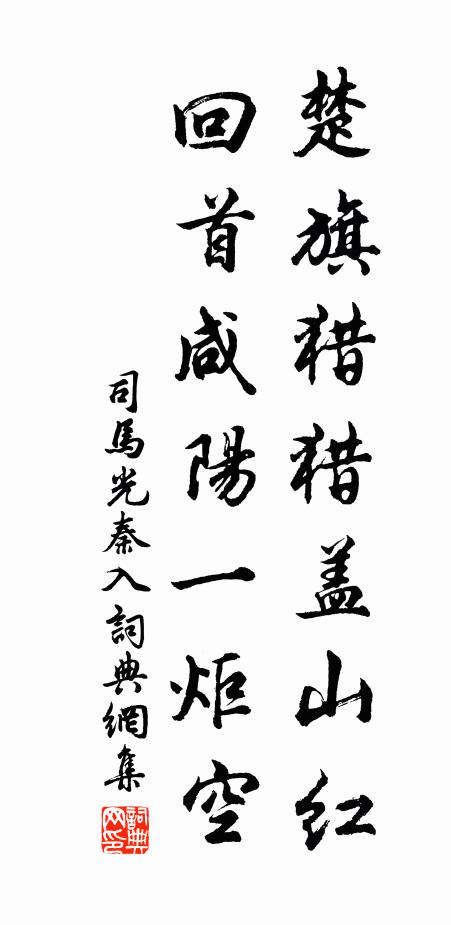 楚旗猎猎盖山红
回首咸陽一炬空
司馬光秦人詞典網集
詞典
网印